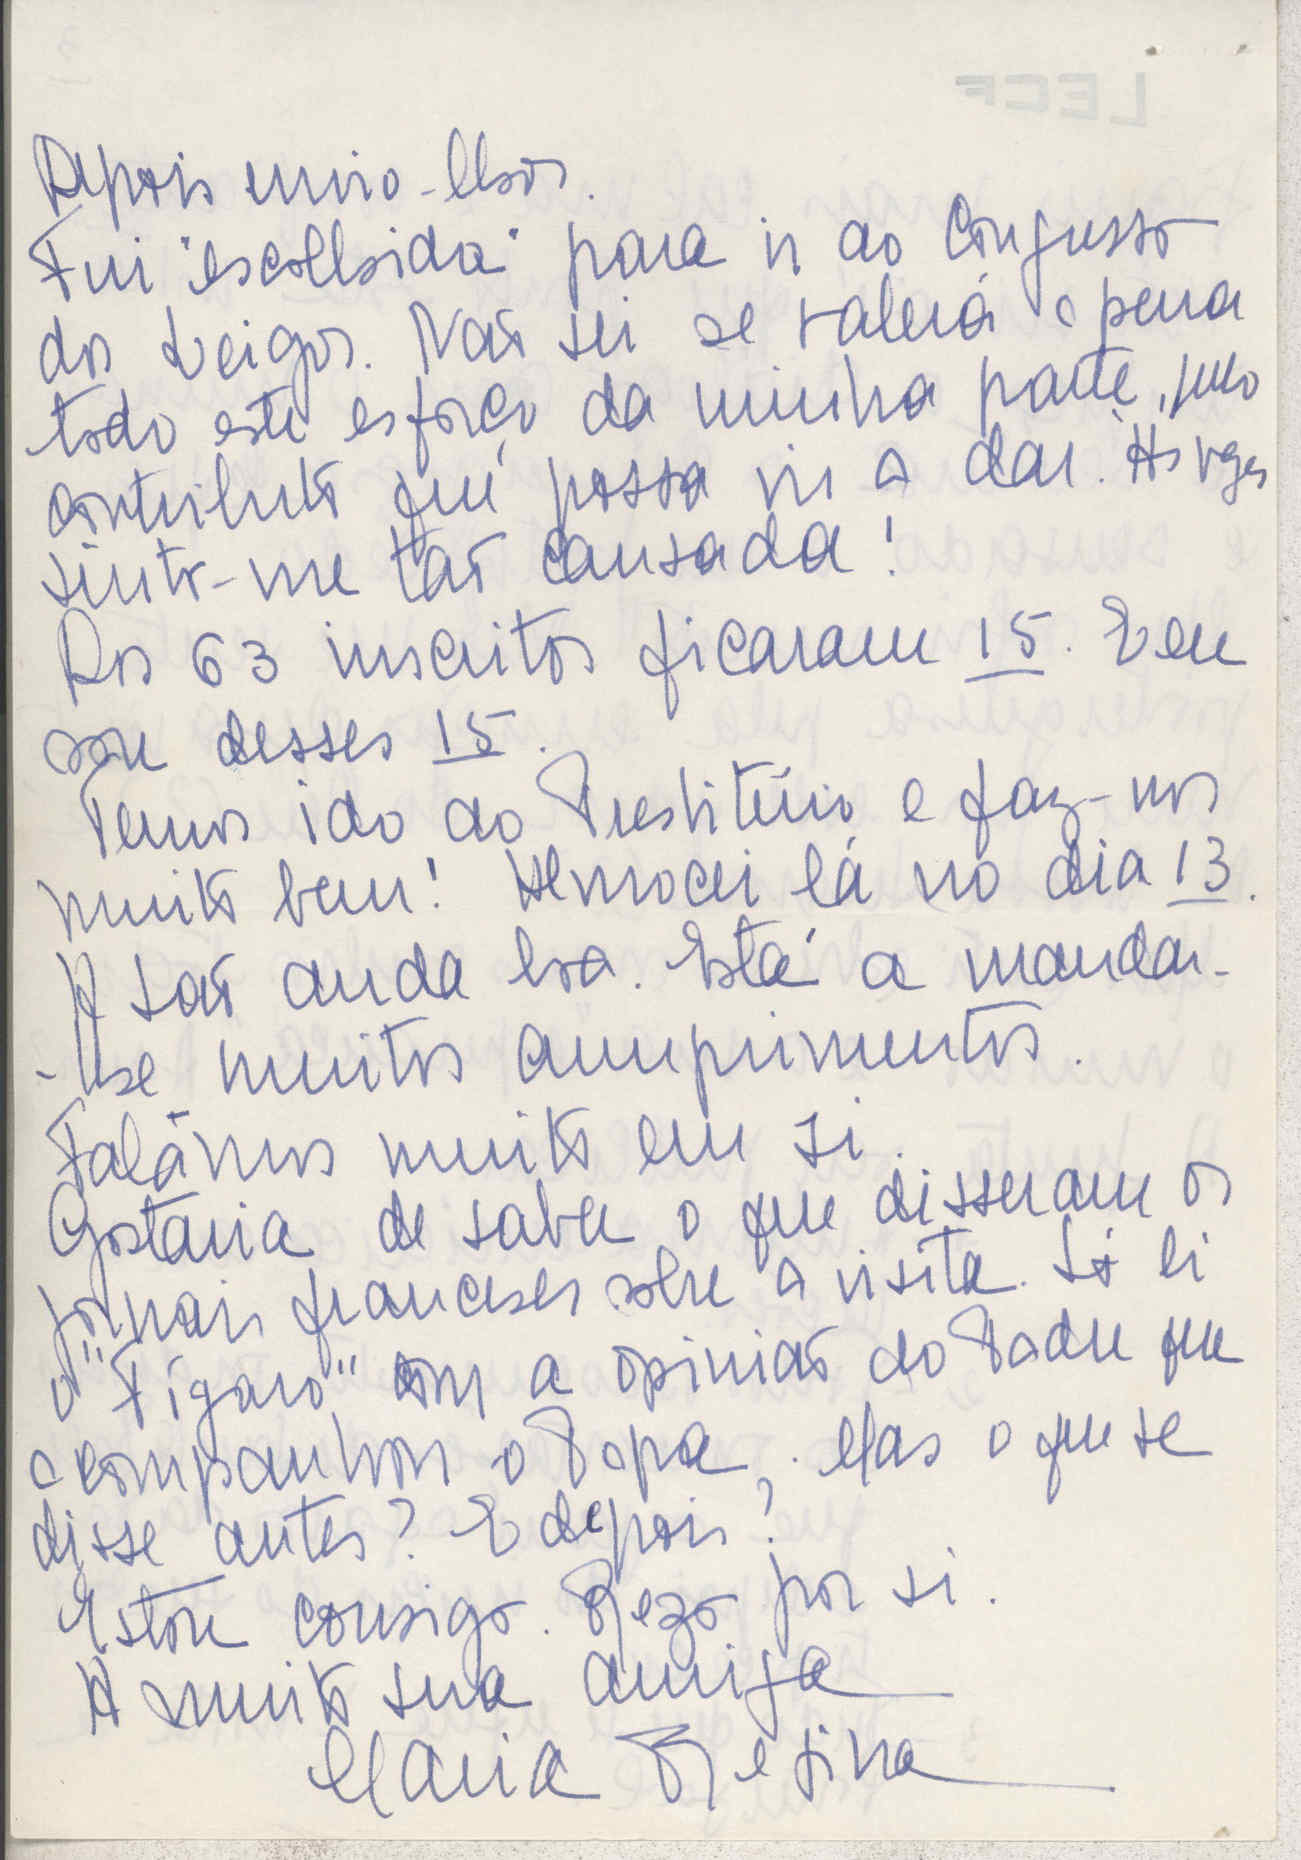 Depois envio-lhos.
Fui "escolhida" para ir ao Congresso
dos Leigos. Não sei se valerá a pena
todo este esforço da minha parte, pelo
contributo que possa vir a dar. Às vezes
sinto-me tão cansada!
Dos 63 inscritos ficaram 15. E eu
sou desses 15.
Temos ido ao Presbitério e faz-nos
muito bem! Almocei lá no dia 13.
A São anda boa. Está a mandar-
-lhe muitos cumprimentos.
Falámos muito em si.
Gostaria de saber o que disseram os
jornais franceses sobre a visita. Só li
o "Fígaro" com a opinião do Padre que
acompanhou o Papa. Mas o que se
disse antes? E depois?
Estou consigo. Rezo por si.
A muito sua amiga
Maria Regina